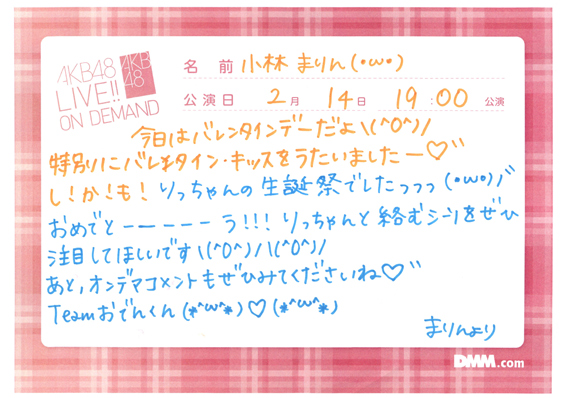 AKB48
LIVE!!
ON DEMAND
AKB
48
名 前 小林 まりん(・ω・)
公演日 2月 14日 19:00 公演
今日はバレンタインデーだよ\(^O^)/
特別にバレンタイン・キッスをうたいましたー♡
し!か!も! りっちゃんの生誕祭でしたっっっ(・ω・)/
おめでとーーーーーう!!! りっちゃんと絡むシーンをぜひ
注目してほしいです\(^O^)/\(^O^)/
あと,オンデマコメントもぜひみてくださいね♡
Teamおでんくん(*^ω^*)♡(*^ω^*)
まりんより
DMM.com